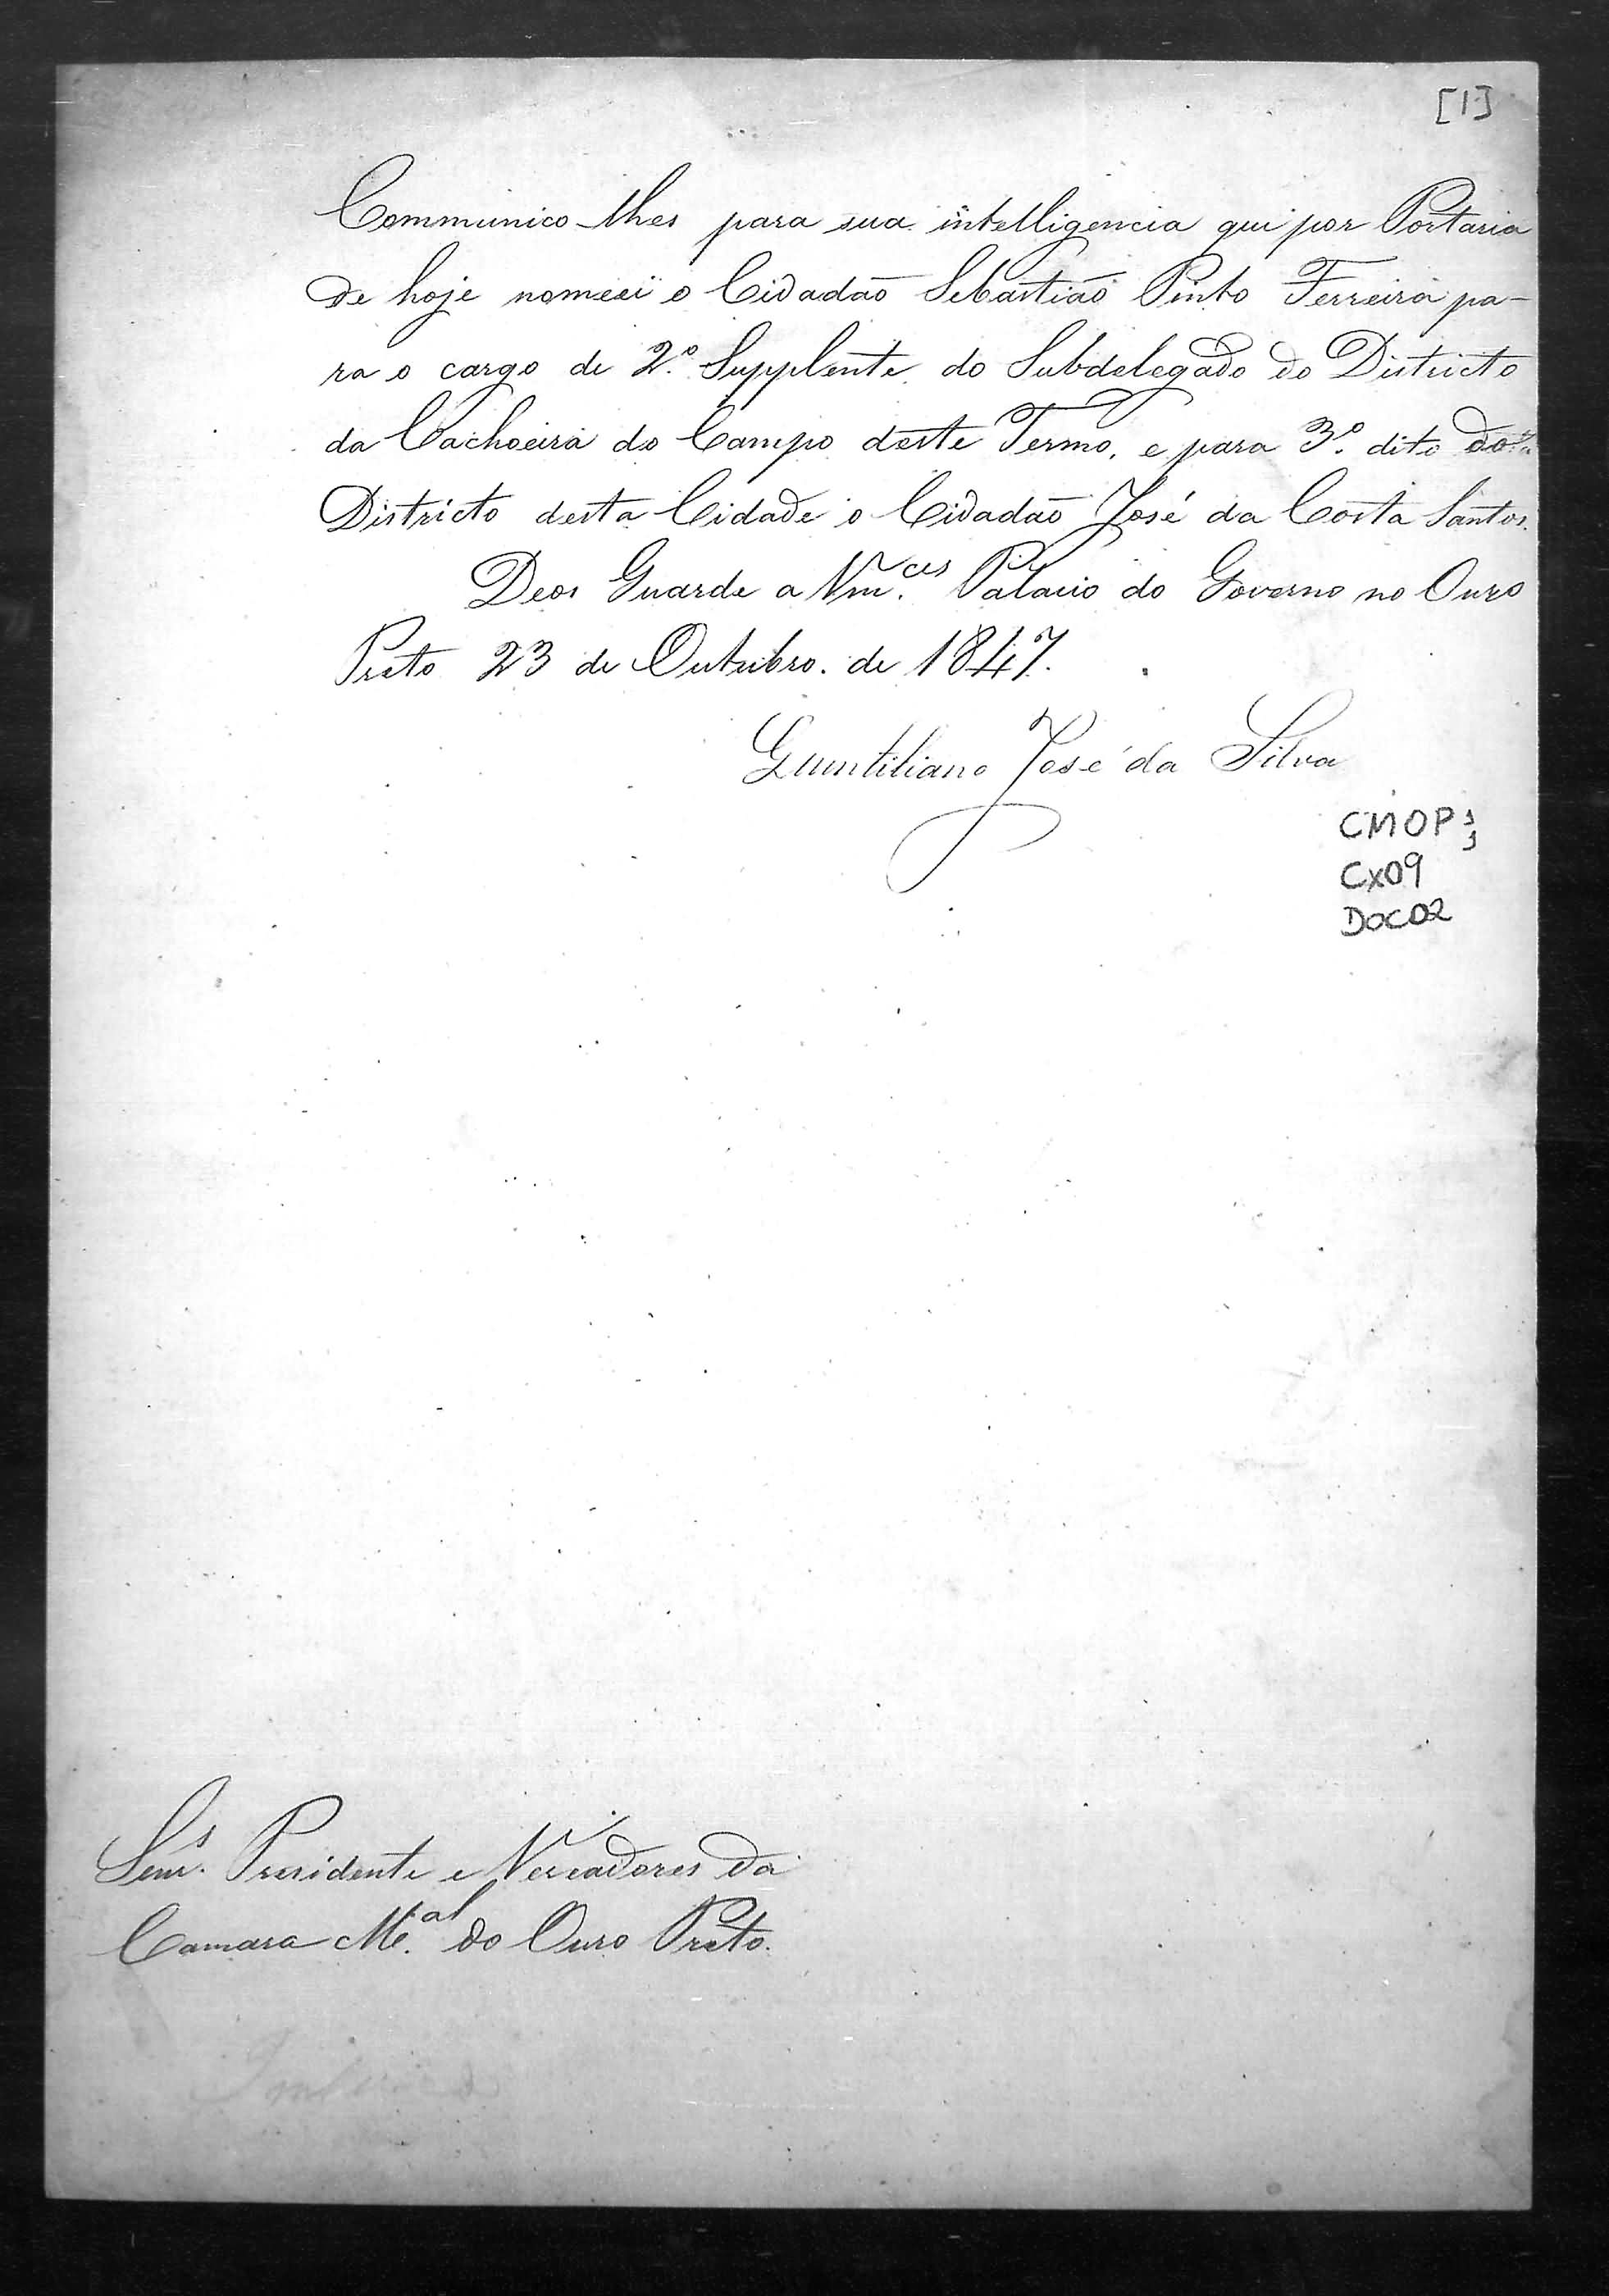 [1]
Communico-lhes para sua intelligencia que por Portaria
de hoje nomeei o Cidadão Sebastião Pinto Ferreira pa-
ra o cargo de 2º. Supplente do Subdelegado do Districto
da Cachoeira do Campo deste Termo, e para 3º. dito do
Districto desta Cidade o Cidadão José da Costa Santos.
Deos Guarde a Vm.ces Palacio do Governo no Ouro
Preto 23 de Outubro de 1847.
Quintiliano José da Silva
CMOP
Cx09
DOC02
Senr.s Presidente e Vereadores da
Camara M.al do Ouro Preto.